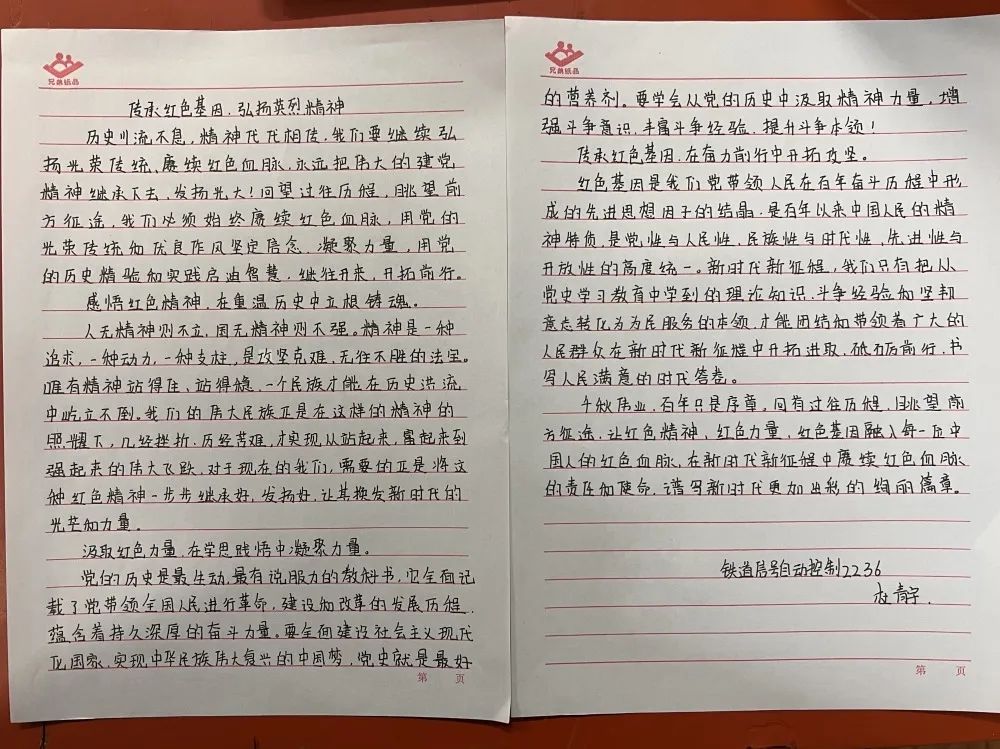 兄弟纸品
传承红色基因.弘扬英烈精神
历史川流不息,精神代代相传,我们要继续弘
扬光荣传统、赓续红色血脉,永远把伟大的建党
精神继承下去、发扬光大!回望过往历程,眺望前
方征途,我们必须始终赓续红色血脉,用党的
光荣传统和优良作风坚定信念、凝聚力量,用党
的历史经验和实践启迪智慧、继往开来,开拓前行。
感悟红色精神,在重温历史中立根铸魂。
人无精神则不立,国无精神则不强。精神是一种
追求,一种动力,一种支柱,是攻坚克难,无往不胜的法宝。
唯有精神站得住、站得稳,一个民族才能在历史洪流
中屹立不倒。我们的伟大民族正是在这样的精神的
照耀下,几经挫折,历经苦难,才实现从站起来,富起来到
强起来的伟大飞跃,对于现在的我们,需要的正是将这
种红色精神一步步继承好,发扬好,让其焕发新时代的
光芒和力量。
汲取红色力量,在学思践悟中凝聚力量。
党的历史是最生动、最有说服力的教科书,它全面记
载了党带领全国人民进行革命,建设和改革的发展历程,
蕴含着持久深厚的奋斗力量。要全面建设社会主义现代
化国家,实现中华民族伟大复兴的中国梦,党史就是最好
第 页
兄弟纸品
的营养剂。要学会从党的历史中汲取精神力量,增
强斗争意识,丰富斗争经验,提升斗争本领!
传承红色基因,在奋力前行中开拓攻坚。
红色基因是我们党带领人民在百年奋斗历程中形
成的先进思想因子的结晶,是百年以来中国人民的精
神特质,是党性与人民性、民族性与时代性、先进性与
开放性的高度统一。新时代新征程,我们只有把从
党史学习教育中学到的理论知识、斗争经验和坚韧
意志转化为为民服务的本领,才能团结和带领着广大的
人民群众在新时代新征程中开拓进取,砥砺前行,书
写人民满意的时代答卷。
千秋伟业,百年只是序章。回首过往历程,眺望前
方征途,让红色精神、红色力量,红色基因融入每一位中
国人的红色血脉,在新时代新征程中赓续红色血脉
的责任和使命,谱写新时代更加出彩的绚丽篇章。
铁道信号自动控制2236
青宇.
第 页